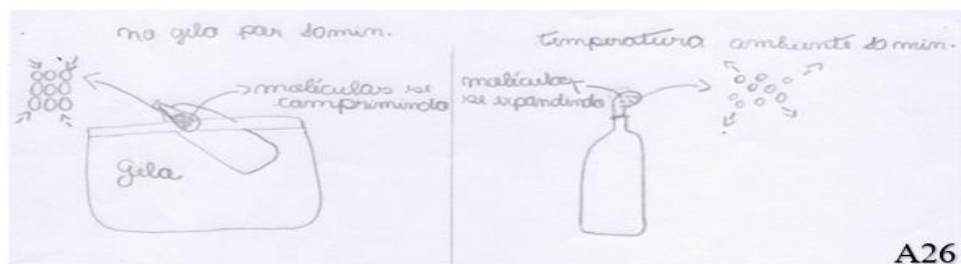 no gelo por 10 min.
moléculas se
comprimindo
Gelo
temperatura ambiente 10 min.
moléculas
se expandindo
A26